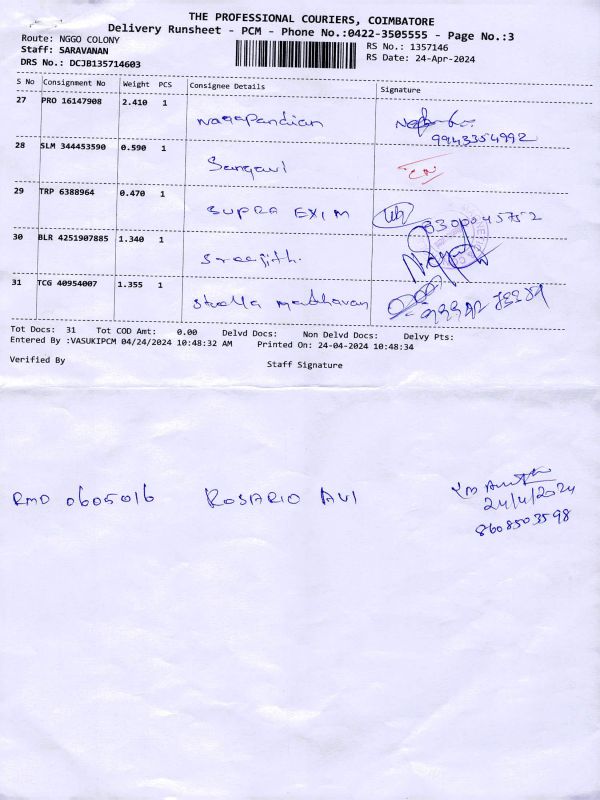 THE PROFESSIONAL COURIERS, COIMBATORE
Delivery Runsheet - PCM - Phone No.:0422-3505555 - Page No.:3
Route: NGGO COLONY
RS No.: 1357146
Staff: SARAVANAN
RS Date: 24-Apr-2024
DRS No.: DCJB135714603
S No Consignment No Weight PCS Consignee Details Signature
27 PRO 16147908 2.410 1 Nagapandian
9943354992
28 SLM 344453590 0.590 1 Sangavi
29 TRP 6388964 0.470 1 SUPRA EXIM
8300045752
30 BLR 4251907885 1.340 1 Sreejith.
31 TCG 40954007 1.355 1 Madhavan
Tot Docs: 31 Tot COD Amt: 0.00 Delvd Docs: Non Delvd Docs: Delvy Pts:
Entered By :VASUKIPCM 04/24/2024 10:48:32 AM Printed On: 24-04-2024 10:48:34
Verified By Staff Signature
RMD 0605016 ROSARIO AVI
24/4/2024
8608503598